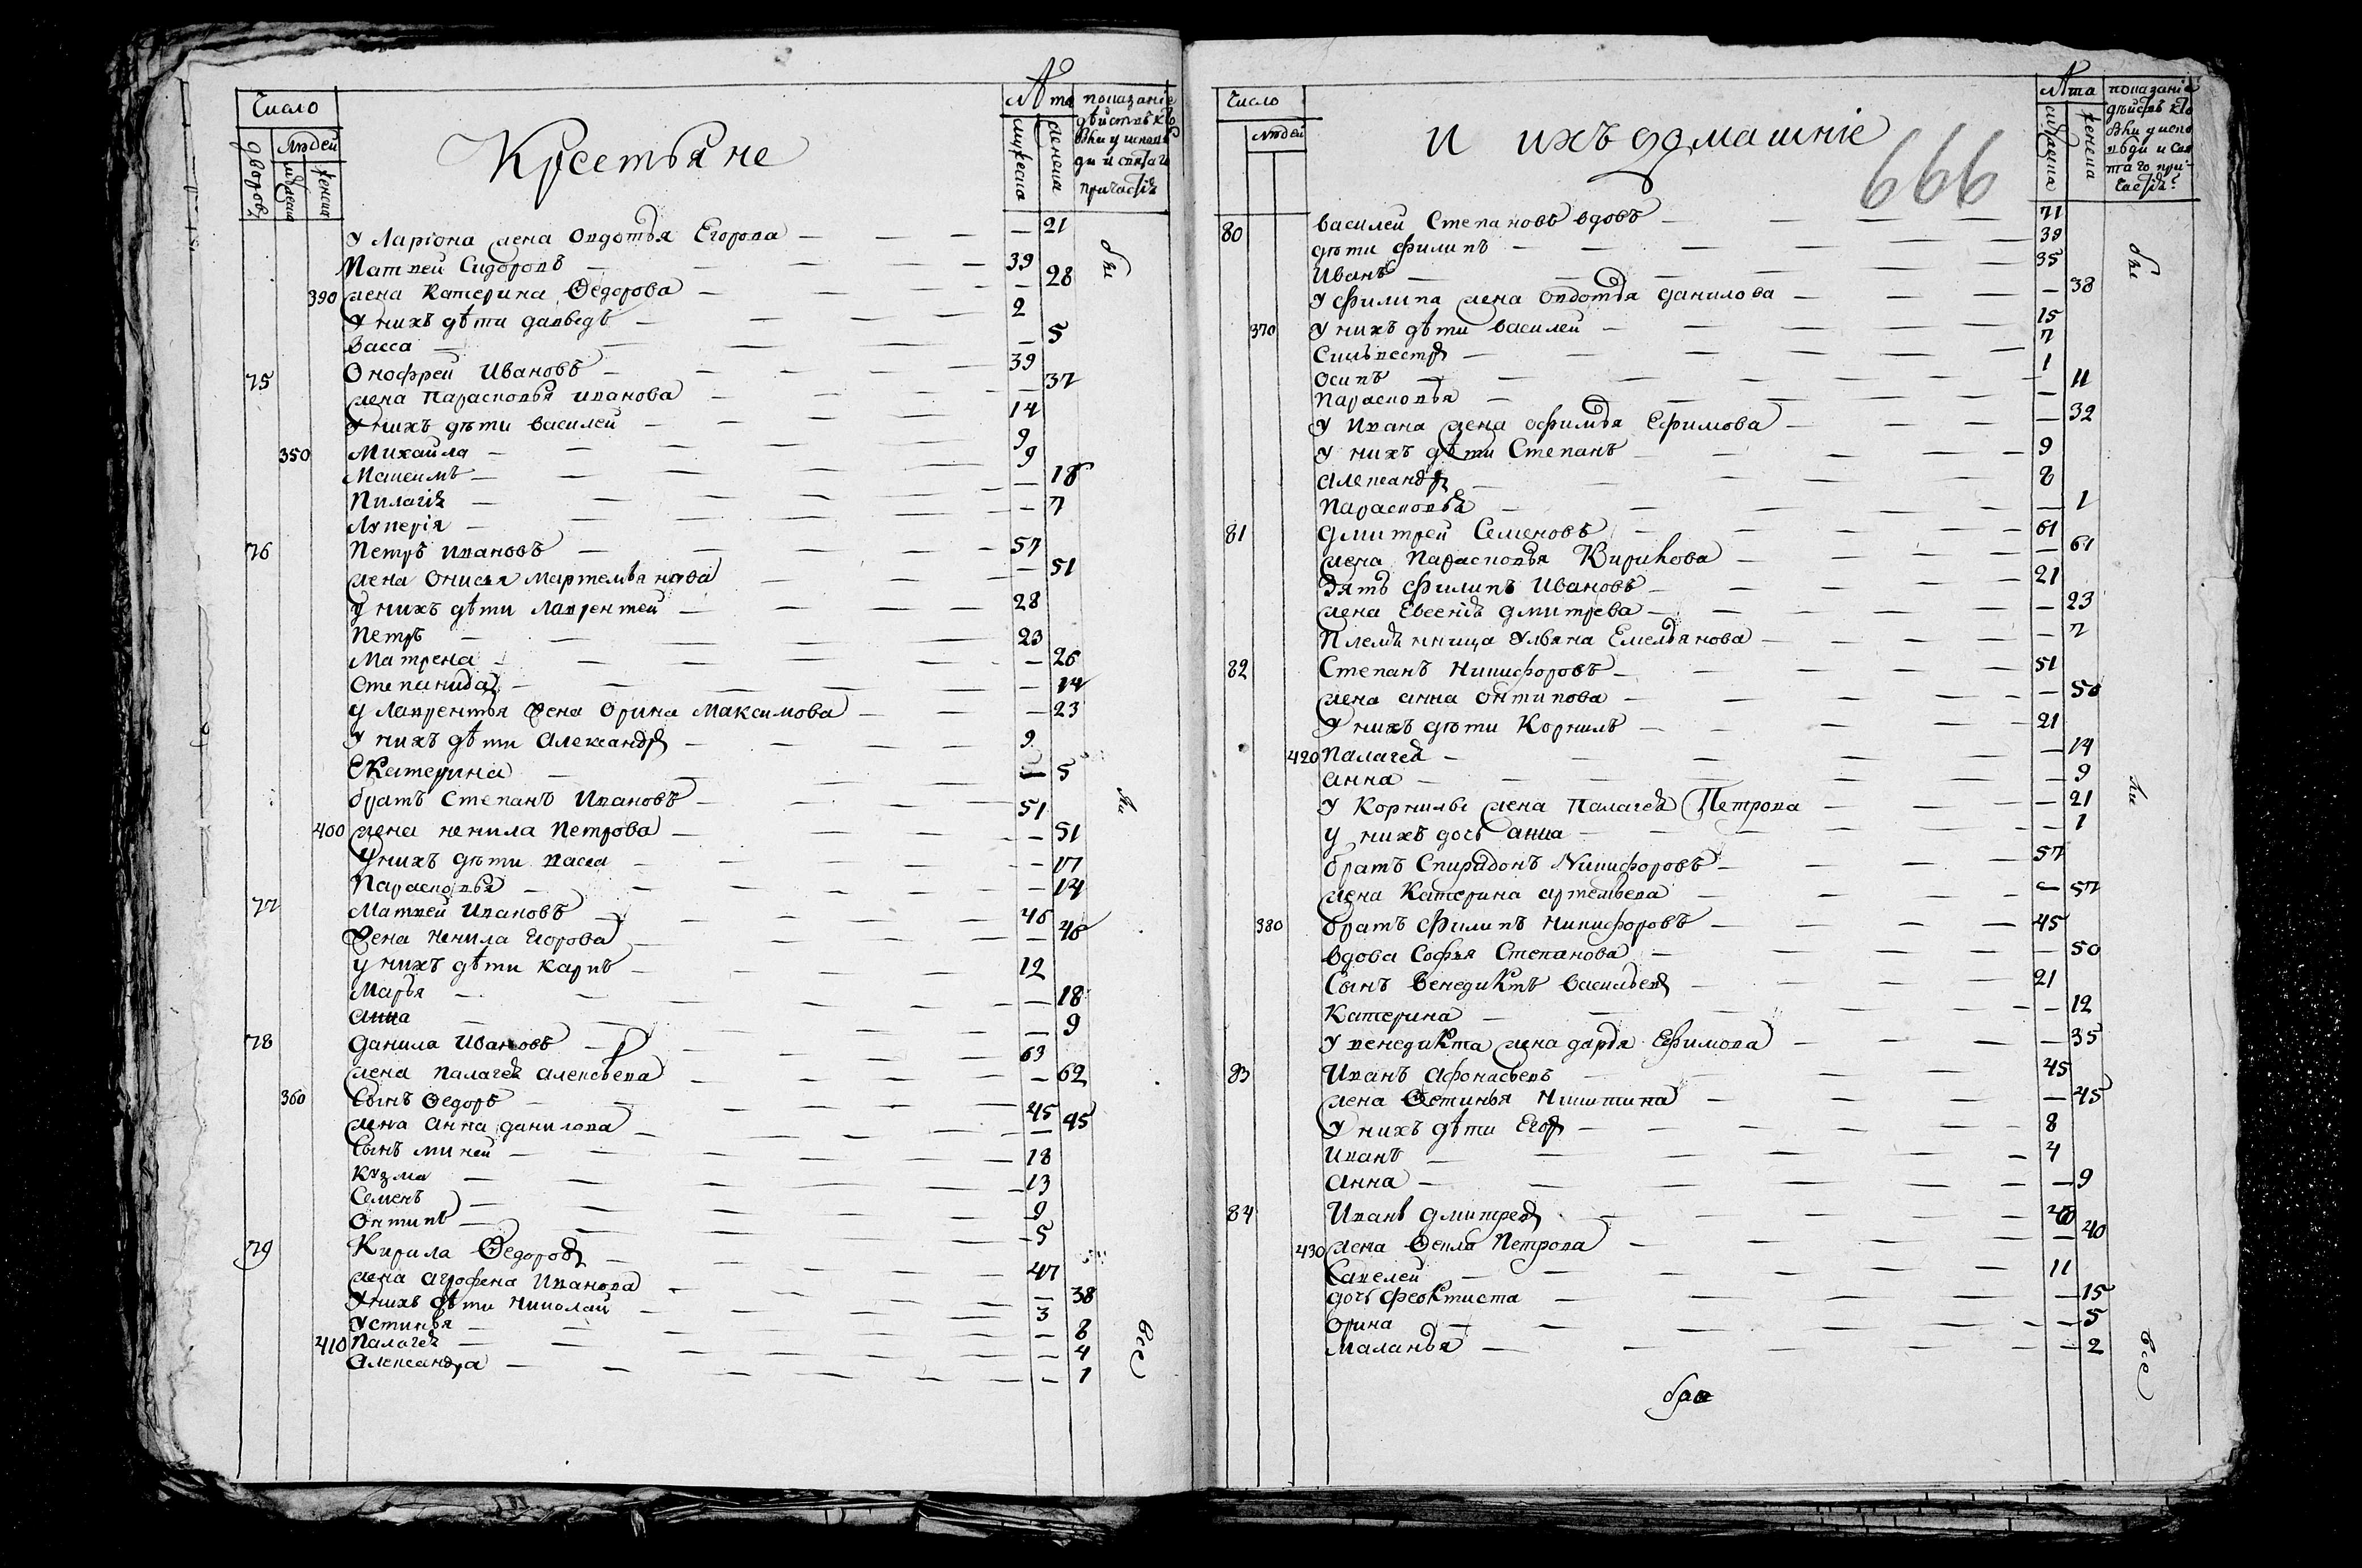 Число
Людей
дворовъ
мужеска
женска
Крестьяне
Лѣта
мужеска
женска
показанiе
дѣйствъ кто
были у испове
ди и святаго
причастiя
У Ларiона жена Овдотья Егорова — 21
Матвей Сидоровъ 39
390 жена Катерина Ѳедорова — 28
У нихъ дѣти давведъ 2
Васса — 5
75 Онофрей Ивановъ 39
жена Парасковья иванова — 37
У нихъ дѣти василей 14
350 Михайла 9
Максимъ 9
Пилагiя — 18
Лукерiя — 7
76 Петръ ивановъ 57
жена Онисья Мартемьянова — 51
у нихъ дѣти Лаврентей 28
Петръ 23
Матрена — 26
Степанида — 14
у Лаврентья жена Орина Максимова — 23
У нихъ дѣти Александръ 9
Екатерина — 5
братъ Степанъ Ивановъ 51
400 жена ненила Петрова — 51
У нихъ дѣти васса — 17
Парасковья — 14
77 Матвей Ивановъ 46
жена Ненила Егорова — 46
у нихъ дѣти карпъ 12
Марья — 18
Анна — 9
78 Данила Ивановъ 63
жена палагея алексѣева — 62
360 Сынъ Ѳедоръ 45
жена Анна данилова — 45
Сынъ миней 18
Кузма 13
Семенъ 9
Онтипъ 5
79 Кирила Ѳедоровъ 47
жена агрофена Иванова — 38
У нихъ дѣти николай 3
Устинья — 8
410 Палагея — 4
Александра — 1
бы
ли
всѣ
Число
Людей
и ихъ домашнiе
666
Лѣта
мужеска
женска
показанiе
дѣйствъ кто
были у испо
вѣди и свя
таго при
частiя
80 василей Степановъ вдовъ 71
дѣти филипъ 39
Иванъ 35
У филипа жена овдотья данилова — 38
370 у нихъ дѣти василей 15
Сильвестръ 7
осипъ 1
Парасковья — 11
У Ивана жена офимья Ефимова — 32
у нихъ дѣти Степанъ 9
Александръ 8
Парасковья — 1
81 Дмитрей Семеновъ 61
жена Парасковья Кирикова — 61
Зять филипъ Ивановъ 21
жена Евсенiя дмитрева — 23
Племянница Ульяна Емельянова — 7
82 Степанъ Никифоровъ 51
жена анна онтипова — 50
У нихъ дѣти Корнилъ 21
420 Палагея — 14
анна — 9
У Корнилы жена Палагея Петрова — 21
у нихъ дочь анна — 1
братъ Спиридонъ Никифоровъ 57
жена Катерина артемьева — 57
380 братъ филипъ никифоровъ 45
вдова Софья Степанова — 50
Сынъ Венедиктъ васильевъ 21
Катерина — 12
У венедикта жена дарья Ефимова — 35
83 Иванъ Афонасьевъ 45
жена Ѳетинья Никитина — 45
У нихъ дѣти Егоръ 8
Иванъ 4
Анна — 9
84 Иванъ дмитревъ 40
430 жена Ѳекла Петрова — 40
Савелей 11
дочь феоктиста — 15
Орина — 5
Маланья — 2
бы
ли
всѣ